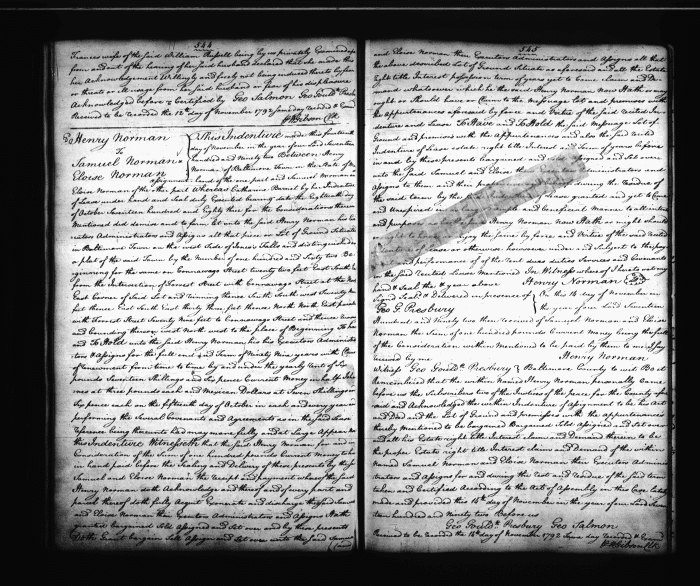 544
Frances wife of the said William being by us privately Examined
from and out of the hearing of her said husband declared that she made this
her Acknowledgement Willingly and freely not being induced thereto by fear
or threats or ill usage from her said husband or fear of his displeasure
Acknowledged before & Certified by Geo Salmon Geo Gould Presbury
Received to be recorded the 12th day of November 1792 same day recorded &
Gibson Clk
Henry Norman
To
Samuel Norman &
Eloise Norman
This Indenture made this fourteenth
day of November in the year of our Lord Seventeen
hundred and Ninety two Between Henry
Norman of Baltimore Town in the State of
Maryland of the one part and Samuel Norman &
Eloise Norman of the other part Whereas Catharine by her Indenture
of Lease under hand and Seal duly Executed bearing date the Eighteenth day
of October Seventeen hundred and Eighty three for the Considerations therein
Mentioned did demise and to farm let unto the said Henry Norman his Executors
Administrators and Assigns all that piece or Lot of Ground Situate
in Baltimore Town on the west Side of Jones's Falls and distinguished
on a plot of the said Town by the Number of one hundred and Sixty two
Beginning for the same on Conawago Street twenty two feet East South
from the Intersection of Forrest Street with Conawago Street at the
East Corner of said Lot and running thence South South west Twenty
feet thence East South East thirty Nine feet thence North North East
with Forrest Street twenty Nine feet to Conawago Street and thence
and bounding thereon west North west to the place of Beginning To have
and To Hold unto the said Henry Norman his Executors Administrators
& Assigns for the full end and Term of Ninety Nine years with the Covenant
of renewment from time to time by and under the yearly Rent of Six
pounds Seventeen Shillings and Six pence Current Money in half Johannes
at three pounds each and Mexican Dollars at Seven Shillings and
Six pence each on the fifteenth day of October in each and every year
performing the Several Covenants and Agreements as in the said
Lease being thereunto had may more fully and at large Appear
this Indenture Witnesseth that the said Henry Norman for and in
Consideration of the Sum of one hundred pounds Current Money to him
in hand paid before the Sealing and Delivery of these presents by the said
Samuel and Eloise Norman the receipt and payment whereof the said
Henry Norman doth Acknowledge and thereof and of every part
he doth thereof doth fully Acquit Exonerate and discharge the said Samuel
and Eloise Norman their Executors Administrators and Assigns Hath
granted bargained Sold Assigned and Set over and by these presents
Doth Grant bargain Sell Assign and Set over unto the said Samuel
545
and Eloise Norman their Executors Administrators and Assigns all that
the above described Lot of Ground Situate as aforesaid and all the Estate
right title Interest possession term of years yet to Come claim and
Demand whatsoever which he the said Henry Norman Now Hath or may
might or Should have or Claim to the Messuage Lot and premises with
the Appurtenances aforesaid by force and Virtue of the said recited
Indenture and Lease To Have and To Hold the said Messuage Lot of
Ground and premises with the Appurtenances and also the said recited
Indenture of Lease estate right title Interest and Term of years before
in and by these presents bargained and Assigned and Set over
unto the said Samuel and Eloise their Executors Administrators and
Assigns to them and their proper during the residue of
the said term by the said Indenture of Lease granted and yet to Come
and Unexpired in as full Ample and beneficial Manner to all intents
and purposes as he the said Henry Norman Now Hath or might should
or ought to have the same by force and Virtue of the said recited
Indenture of Lease or otherwise however under and Subject to the payment
and performance of the rent dues duties Services and Covenants
in the said recited Lease Mentioned In Witness whereof I hereto set my
hand & Seal the year above Henry Norman Seal
Signed and Sealed & Delivered in presence of
Geo G Presbury
On the 14th day of November in
the year of our Lord Seventeen
Hundred and Ninety two received of Samuel Norman and Eloise
Norman the Sum of one hundred pounds Current Money being the full
of the Consideration within Mentioned to be paid by them to me I say
received by me Henry Norman
Witness Geo Gould Presbury
Baltimore County to wit Be it
Remembered that the within Named Henry Norman personally came
before us the Subscribers two of the Justices of the peace for the County aforesaid
and Acknowledged the within Indenture of Assignment to be his Act
and Deed and the Lot of Ground and premises with the appurtenances
thereby Mentioned to be bargained Bargained Sold Assigned and Set over
and all his Estate right title Interest claim and Demand therein to be
the proper Estate right title Interest claim and Demand of the within
Named Samuel Norman and Eloise Norman their Executors
Administrators and Assigns for and during the rest and residue of the said term
taken and Certified According to the Act of Assembly in this Case lately
made and provided the 14th day of November in the year of our Lord Seventeen
hundred and Ninety two Before us
Geo Gould Presbury Geo Salmon
Received to be recorded the 15th day of November 1792 Same day recorded &
Gibson Clk